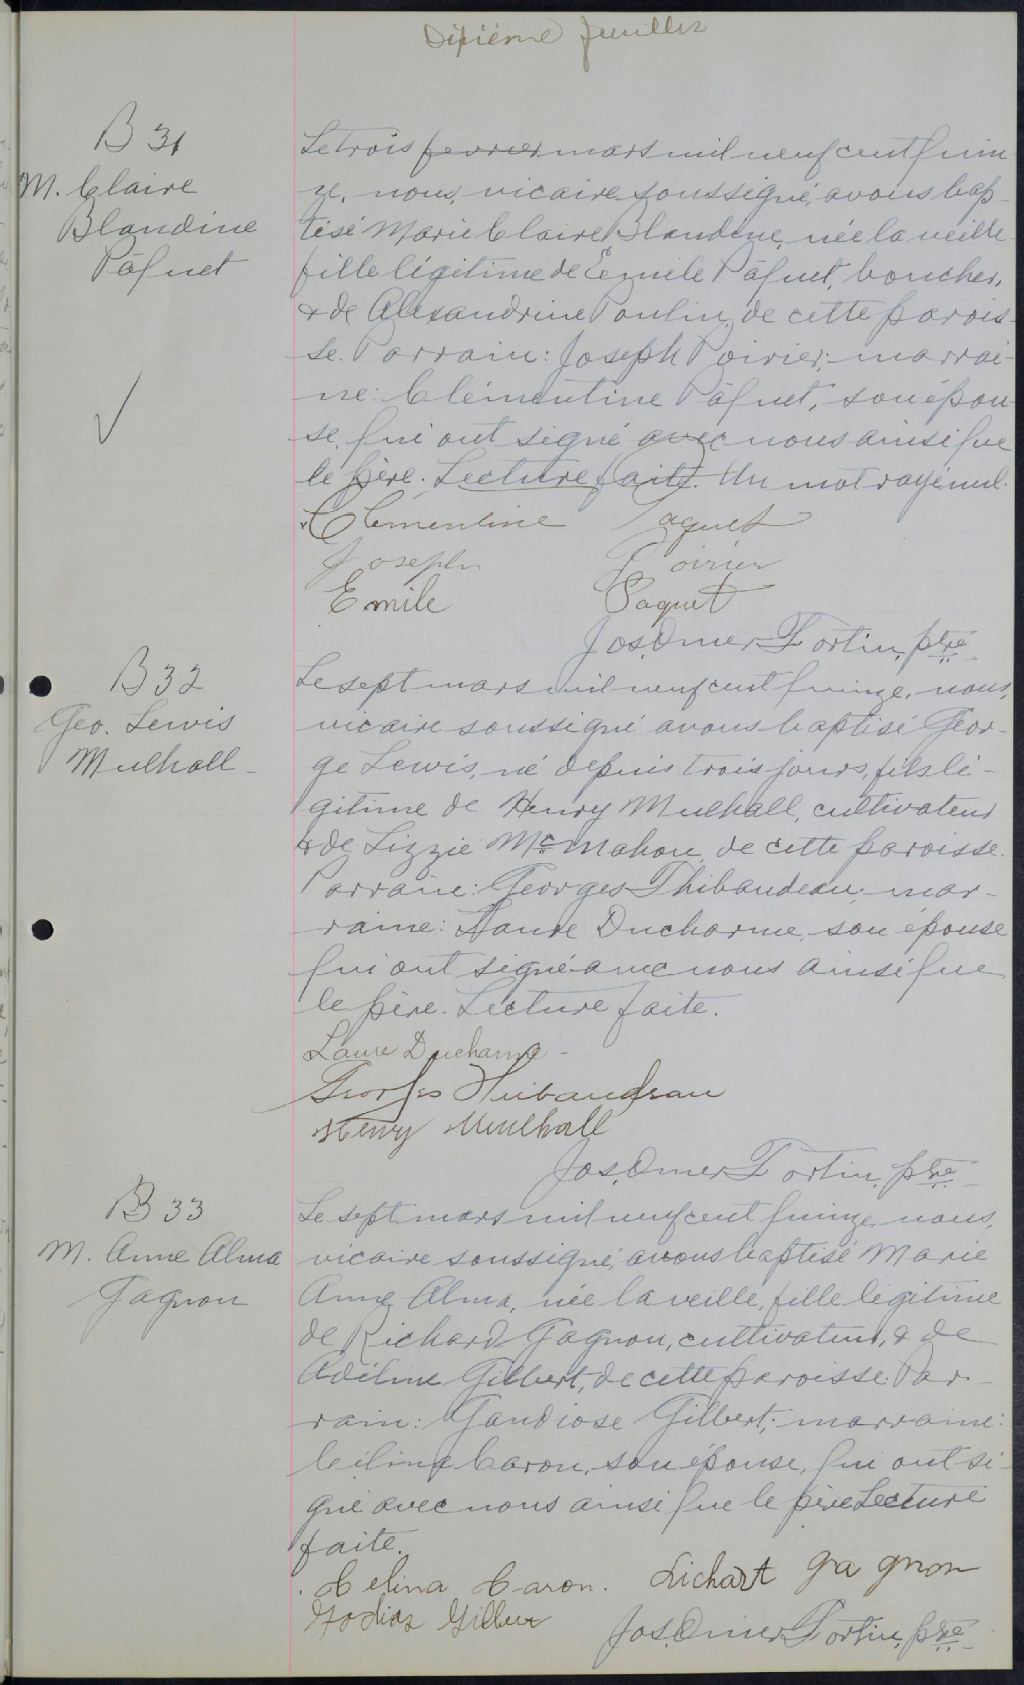 Dixième feuillet
B 31
M. Claire
Blandine
Pâquet
Le trois fevrier mars mil neuf cent quin
ze, nous, vicaire soussigné, avons bap-
tisé Marie Claire Blandine, née la veille
fille légitime de Emile Pâquet, boucher,
& de Alexandrine Poulin, de cette parois-
se. Parrain: Joseph Poirier; marrai-
ne: Clémentine Pâquet, son épou-
se, qui ont signé avec nous ainsi que
le père. Lecture faite. Un mot rayé nul.
Clementine Paquet
Joseph Poirier
Emile Paquet
Jos. Omer Fortin, ptre
B 32
Geo. Lewis
Mulhall
Le sept mars mil neuf cent quinze, nous,
vicaire soussigné avons baptisé Geor-
ge Lewis, né depuis trois jours, fils lé-
gitime de Henry Mulhall, cultivateur
& de Lizzie Mc Mahon, de cette paroisse.
Parrain: Georges Thibaudeau; mar-
raine: Laure Ducharme, son épouse
qui ont signé avec nous ainsi que
le père. Lecture faite.
Laure Ducharme
Georges Thibaudeau
Henry Mulhall
Jos. Omer Fortin, ptre
B 33
M. Anne Alma
Gagnon
Le sept mars mil neuf cent quinze, nous,
vicaire soussigné, avons baptisé Marie
Anne Alma, née la veille, fille légitime
de Richard Gagnon, cultivateur, & de
Adéline Gilbert, de cette paroisse. Par-
rain: Gaudiose Gilbert; marraine:
Célina Caron, son épouse, qui ont si-
gné avec nous ainsi que le père Lecture
faite.
Celina Caron. Richart Gagnon
Godias Gilber
Jos. Omer Fortin, ptre